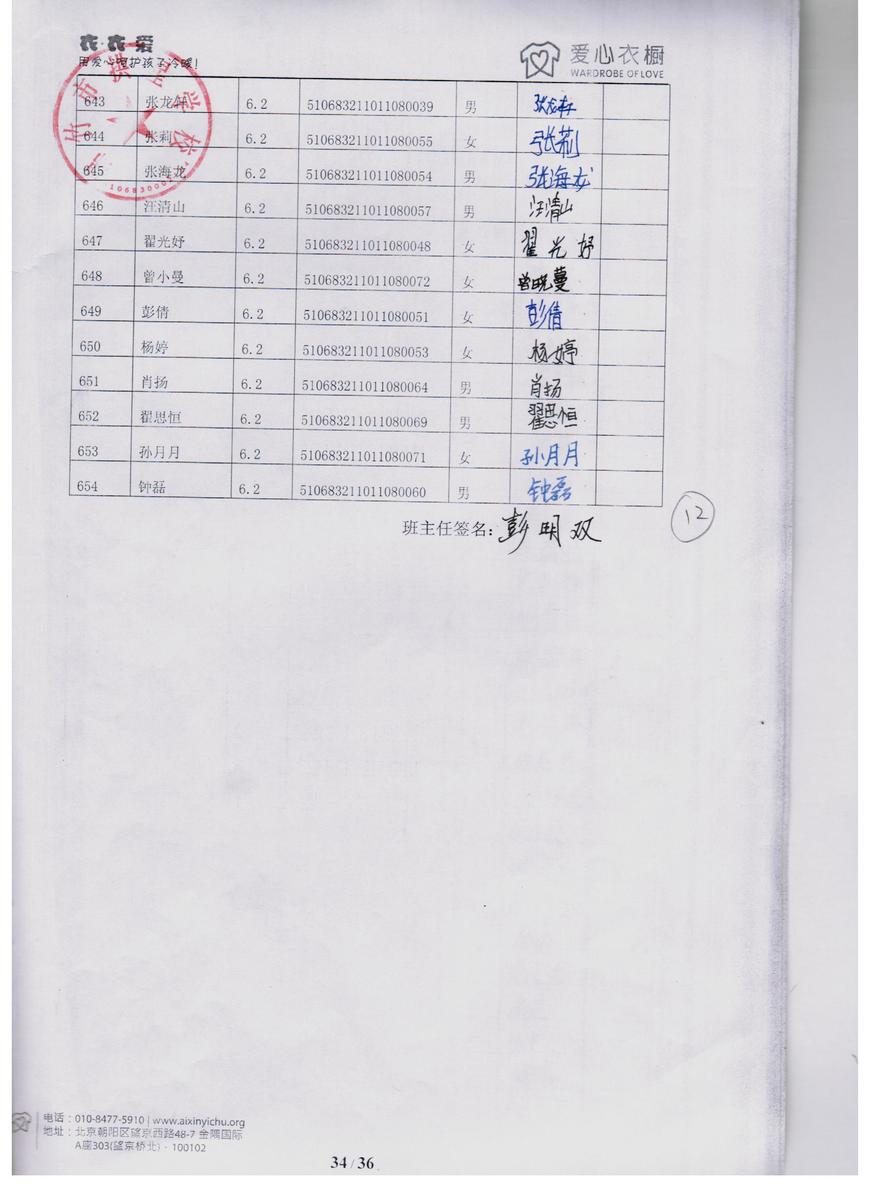 衣·衣爱
用爱心呵护孩子冷暖!
爱心衣橱
WARDROBE OF LOVE
643 张龙轩 6.2 510683211011080039 男
644 张莉 6.2 510683211011080055 女 张莉
645 张海龙 6.2 510683211011080054 男 张海龙
646 汪清山 6.2 510683211011080057 男 汪清山
647 翟光妤 6.2 510683211011080048 女 翟光妤
648 曾小曼 6.2 510683211011080072 女 曾晓蔓
649 彭倩 6.2 510683211011080051 女 彭倩
650 杨婷 6.2 510683211011080053 女 杨婷
651 肖扬 6.2 510683211011080064 男 肖扬
652 翟思恒 6.2 510683211011080069 男 翟思恒
653 孙月月 6.2 510683211011080071 女 孙月月
654 钟磊 6.2 510683211011080060 男 钟磊
班主任签名:彭明双
12
电话:010-8477-5910 | www.aixinyichu.org
地址:北京朝阳区望京西路48-7 金隅国际
A座303(望京桥北) · 100102
34 / 36